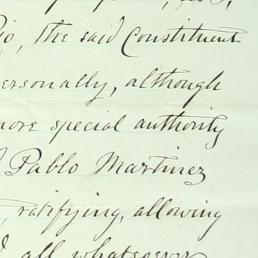 the said Constituent
personally, although
more special authority
Pablo Martinez
ratifying, allowing
all whatsoever